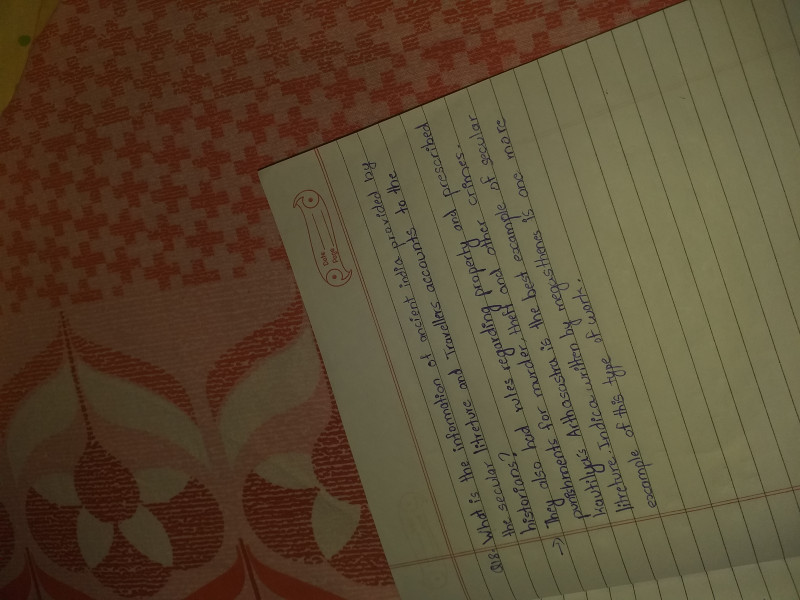 Date
Page
Q18. What is the information of ancient india provided by
the secular litreture and Travellers accounts to the
historians?
-> They also had rules regarding property and prescribed
punishments for murder, theft and other crimes.
kautilya's Arthasastra is the best example of secular
litreture. Indica written by megasthenes is one more
example of this type of work.